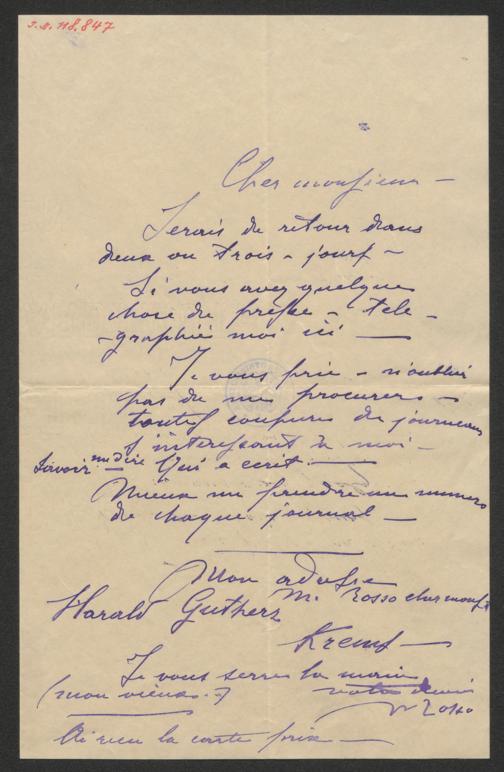 I.N. 118.847
Cher monsieur —
Serais de retour dans
deux ou trois - jours -
Si vous avez quelque
chose de presse - tele-
-graphié moi ici —
Je vous prie - n'oublié
pas de me procurers -
toutes coupures de journeaux
s'interessant à moi -
Savoir me dire Qui a ecrit. —
Mieux me prendre un numero
de chaque journal —
Mon adresse
M. Rosso chez mons
Harald Gutherz
Krems —
Je vous serre la main
(mon vieux..)
M Rosso
la carte prix —